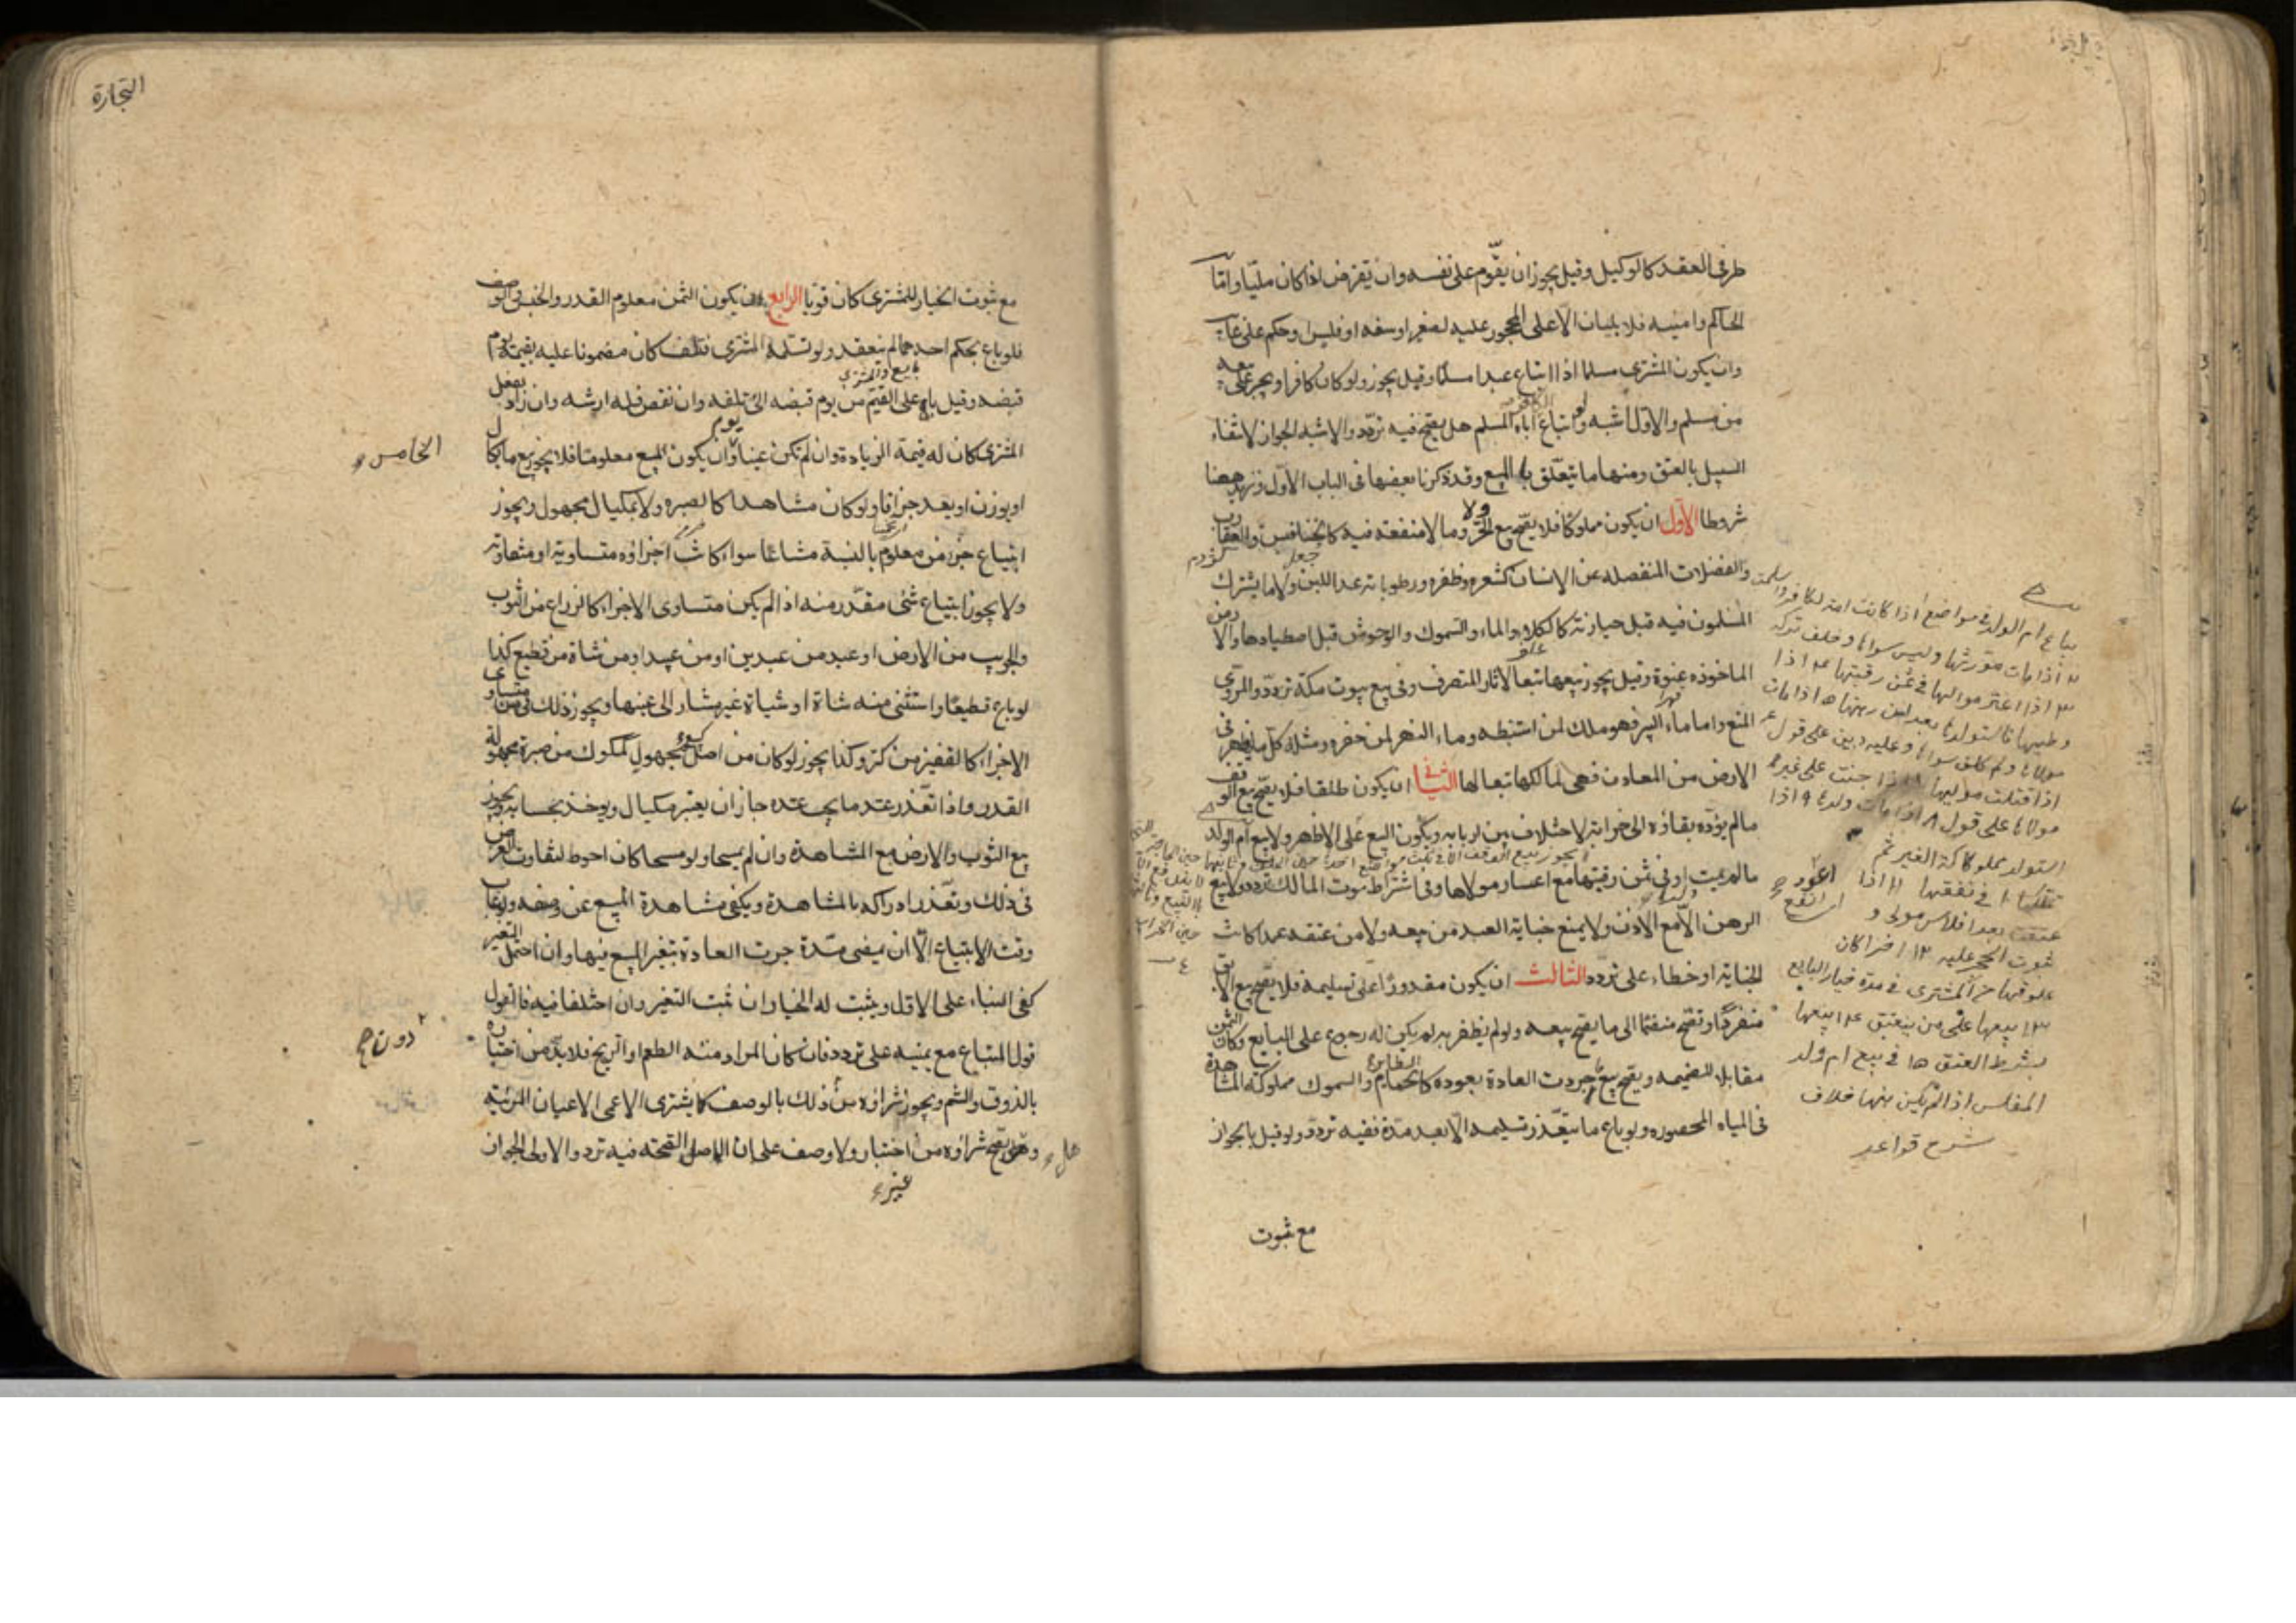 طرفى العقد كالوكيل وقيل يجوز ان يقوم على نفسه وان يقترض اذا كان مليّا وامّا
الحاكم وامينه فلا يليان الّا على المحجور عليه لصغر او سفه او فلس او حكم على غايب
وان يكون المشترى مسلما اذا ابتاع عبدا مسلما وقيل يجوز ولو كان كافرا ويجبر على بيعه
من مسلم والاول اشبه ولو ابتاع الكافر اباه المسلم هل يصحّ فيه تردّد والاشبه الجواز لانتفاء
السبيل بالعتق ومنها ما يتعلّق بالمبيع وقد ذكرنا بعضها فى الباب الاوّل ونزيد هيهنا
شروطا الاول ان يكون مملوكا فلا يصحّ بيع الحرّ ولا وما لا منفعة فيه كالخنافس والعقارب
والفضلات المنفصله عن الانسان كشعره وظفره ورطوباته عدا اللبن ولا ما يشترك
المسلمون فيه قبل حيازته كالكلاء والماء والسموك والوحوش قبل اصطيادها والارض
الماخوذه عنوة وقيل يجوز بيعها تبعا لآثار المتصرف وفى بيع بيوت مكة تردّد والمروى
المنع واما ماء البير فهو ملك لمن استنبطه وماء النهر لمن حفره ومثله كل ما يظهر فى
الارض من المعادن فهى لمالكها تبعا لها الثانى ان يكون طلقا فلا يصحّ بيع الوقف
ما لم يؤدّ بقاؤه الى خرابه لاختلاف بين اربابه ويكون البيع على الاظهر ولا بيع ام الولد
ما لم يمت او فى ثمن رقبتها مع اعسار مولاها وفى اشتراط موت المالك تردد ولا بيع
الرهن الّا مع الاذن ولا يمنع جناية العبد من بيعه ولا من عتقه عمدا كانت
الجناية او خطاء على تردد الثالث ان يكون مقدورا على تسليمه فلا يصحّ بيع الابق
منفردا وتصحّ منضمّا الى ما يصحّ بيعه ولو لم يظفر به لم يكن له رجوع على البايع وكان الثمن
مقابلا للضميمه ويصحّ بيع ما جرت العادة بعوده كالحمام الطايرة والسموك مملوكة المشاهدة
فى المياه المحصوره ولو باع ما يتعذر تسليمه الّا بعد مدّة ففيه تردّد ولو قيل بالجواز
مع ثبوت
يباع ام الولد فى مواضع اذا كانت امة لكافر واسلمت
٢ اذا مات مورثها وليس سواها وخلف تركة
٣ اذا اعسر مولاها فى ثمن رقبتها ٤ اذا
مولاها ولم يخلف سواها وعليه دين على قول
اذا قتلت موليها اذا جنت على غير
مولاها على قول ٨ اذا مات ولدها ٩ اذا
فى نفقتها ١١ اذا
عتقت بعد افلاس مولى و
ثبوت الحجر عليه ١٢ اذا كان
علوقها من المشترى فى مدة خيار البايع
١٣ بيعها على من ينعتق ١٤ بيعها
بشرط العتق ١٥ فى بيع ام ولد
المفلس اذا لم يكن منها خلاف
شرح قواعد
التجارة
مع ثبوت الخيار للمشترى كان قويا الرابع ان يكون الثمن معلوم القدر والجنس والوصف
فلو باع بحكم احدهما لم ينعقد ولو تسلمه المشترى فتلف كان مضمونا عليه بقيمته يوم
قبضه وقيل باعلى القيم من يوم قبضه الى تلفه وان نقص فله ارشه وان زاد بفعل
المشترى كان له قيمة الزيادة وان لم تكن عينا وان يكون المبيع معلوما فلا يجوز بيع ما يكال
الخامس
او يوزن او يعد جزافا ولو كان مشاهدا كالصبره ولا بمكيال مجهول ويجوز
ابتياع جزء من معلوم بالنسبة مشاعا سواء كانت اجزاؤه متساوية او متفاوته
ولا يجوز ابتياع شئ مقدّر منه اذا لم يكن متساوى الاجزاء كالزراع من الثوب
والجريب من الارض او عبد من عبدين او من عبيد او من شاة من قطيع كذا
لو باع قطيعا واستثنى منه شاة او شياة غير مشار الى عينها ويجوز ذلك فى متساوى
الاجزاء كالقفيز من كر وكذا يجوز لو كان من اصل مجهول كمكوك من صبرة مجهولة
القدر واذا تعذر عدّ ما يجب عدّه جاز ان يعتبر بمكيال ويوخذ بحسابه ويجوز
بيع الثوب والارض مع المشاهدة وان لم يمسحا ولو مسحا كان احوط لتفاوت الغرض
فى ذلك وتعذر ادراكه بالمشاهدة ويكفى مشاهدة المبيع عن وصفه ولو غاب
وقت الابتياع الّا ان يمضى مدّة جرت العادة بتغير المبيع فيها وان احتمل التغير
كفى البناء على الاول ويثبت له الخيار ان ثبت التغير وان اختلفا فيه فالقول
قول المبتاع مع يمينه على تردد فان كان المراد منه الطعم او الريح فلا بدّ من اختباره
دون
بالذوق والشم ويجوز شراؤه من ذلك بالوصف كما يشترى الاعمى الاعيان المرئيه
وهل يصحّ شراؤه من اختبار ولا وصف على ان الاصل الصحّه فيه تردد والاولى الجواز
هل
غير